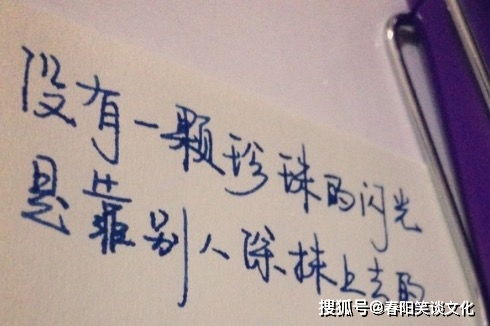 没有一颗珍珠的闪光
是靠别人涂抹上去的
搜狐号@春阳笑谈文化